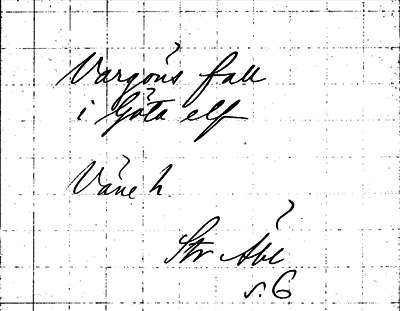 Vargöns fall
i Göta elf
Väne h
Str Åbl
s. 6